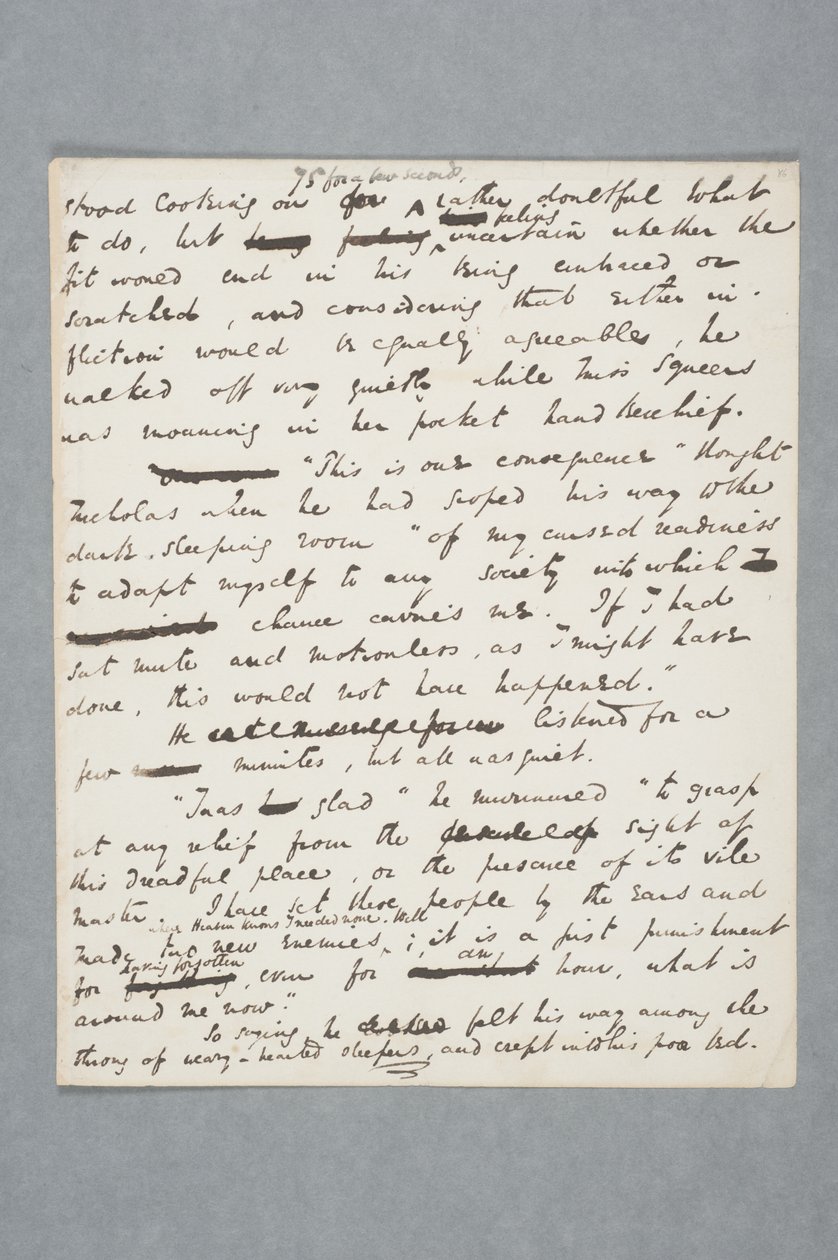 75 for a few seconds,
stood looking on rather doubtful what
feeling
to do, but uncertain whether the
fit would end in his being embraced or
scratched, and considering that either in-
fliction would be equally agreeable, he
walked off very quietly while Miss Squeers
was moaning in her pocket handkerchief.
"This is one consequence" thought
Nicholas when he had groped his way to the
dark sleeping room "of my cursed readiness
to adapt myself to any society into which
chance carries me. If I had
sat mute and motionless, as I might have
done, this would not have happened."
He listened for a
few minutes, but all was quiet.
"I was glad" he murmured "to grasp
at any relief from the sight of
this dreadful place, or the presence of its vile
master. I have set these people by the ears and
when Heaven knows I needed none. Well
made two new enemies, ; it is a just punishment
having forgotten an
for , even for hour, what is
around me now."
So saying, he felt his way among the
throng of weary-hearted sleepers, and crept into his poor bed.